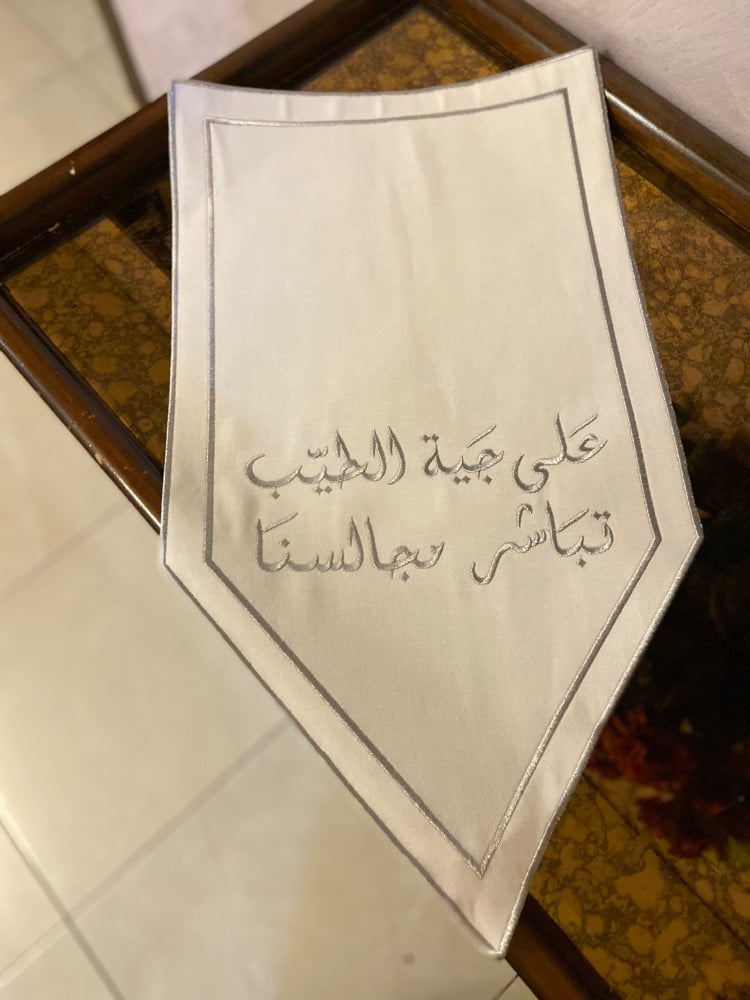 عَلى جَية الطيّب
تبَاشر مجالسنَا